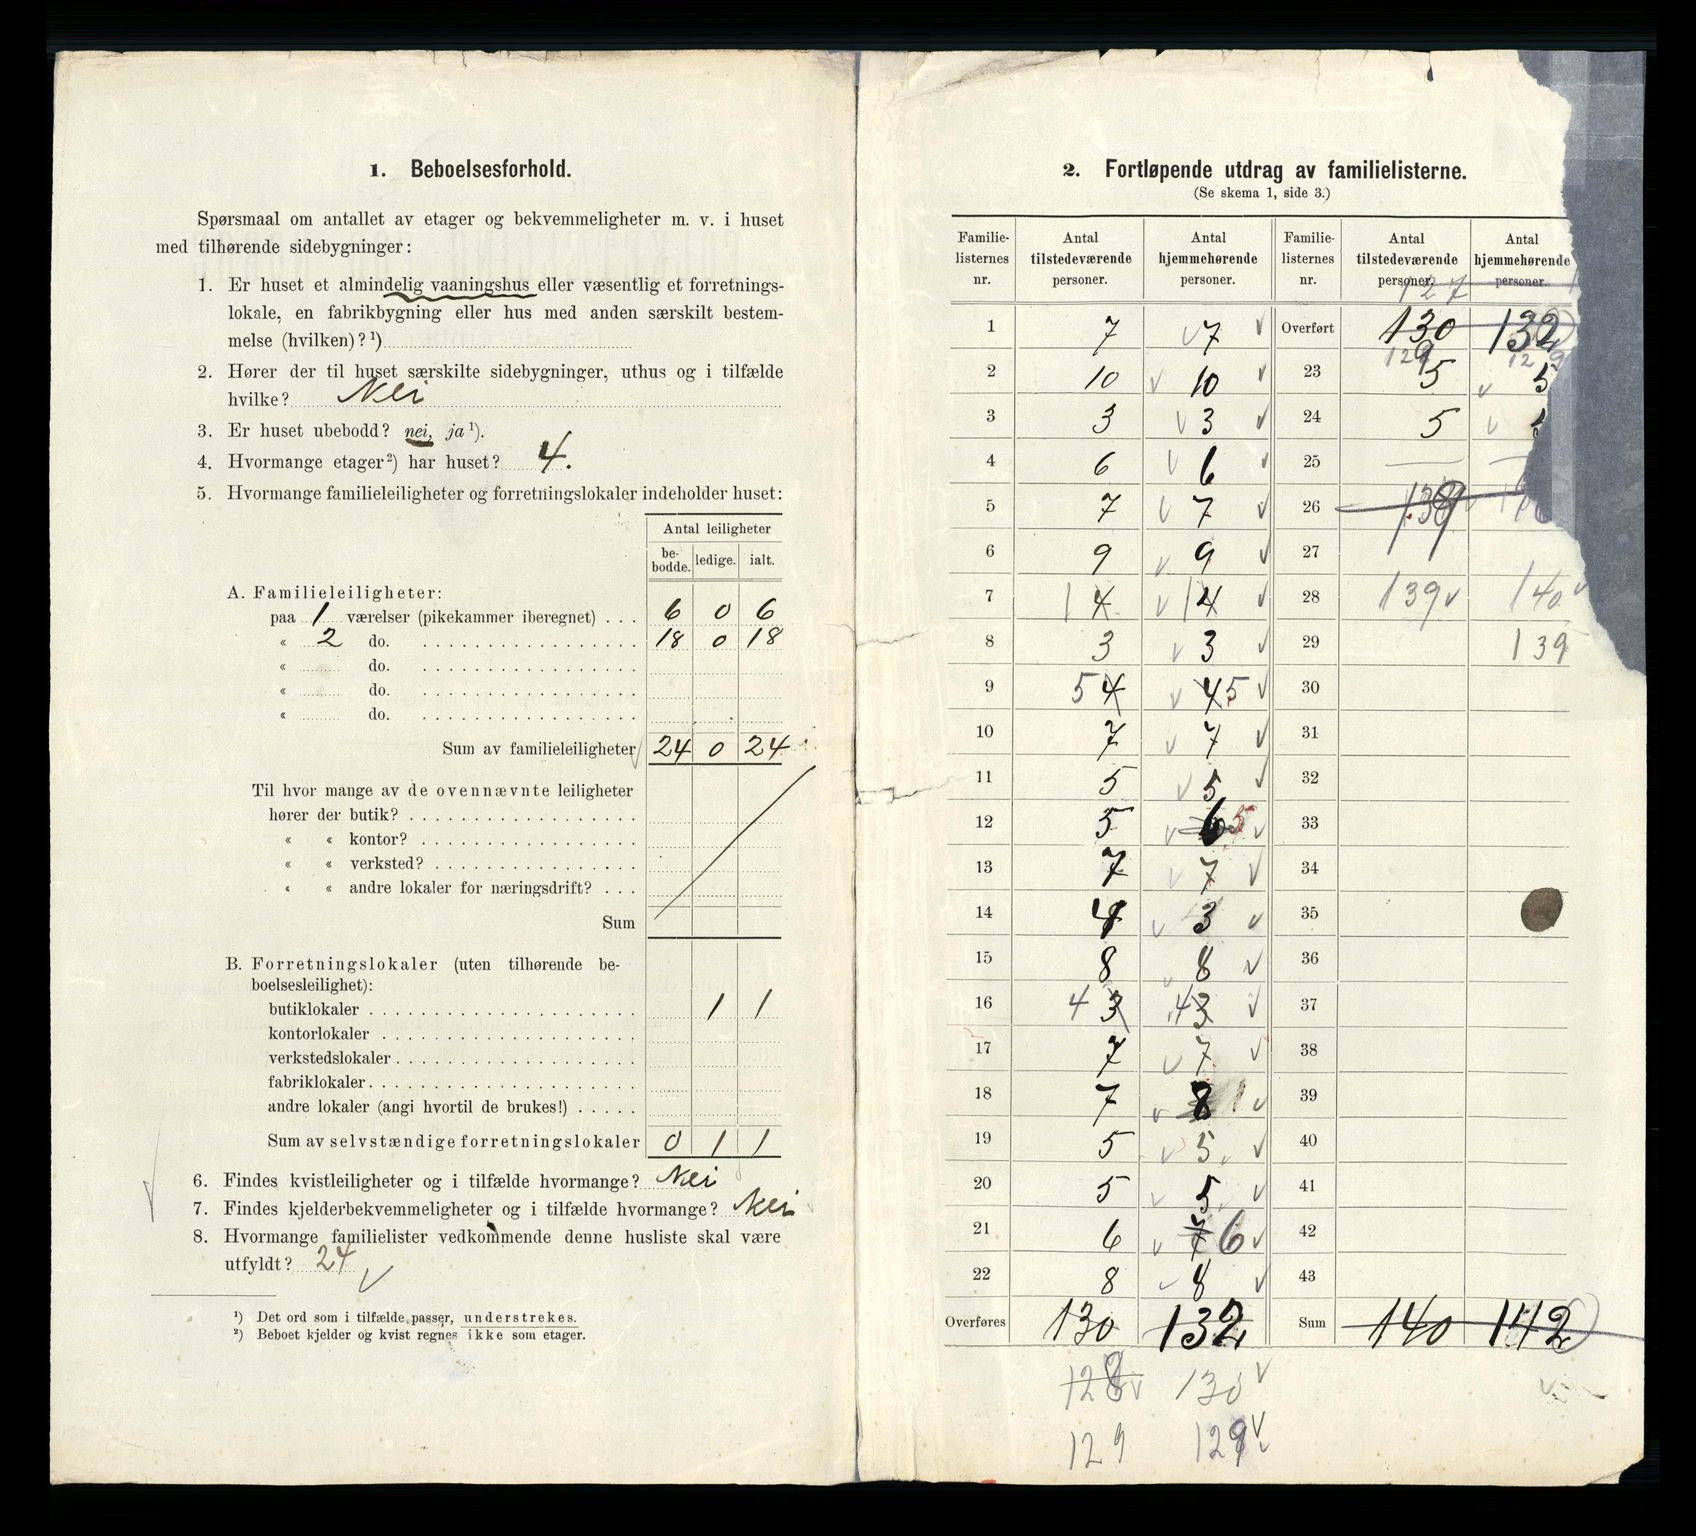 1. Beboelsesforhold.
Spørsmaal om antallet av etager og bekvemmeligheter m. v. i huset
med tilhørende sidebygninger:
1. Er huset et almindelig vaaningshus eller væsentlig et forretnings-
lokale, en fabrikbygning eller hus med anden særskilt bestem-
melse (hvilken)? ¹)
2. Hører der til huset særskilte sidebygninger, uthus og i tilfælde
hvilke? Nei
3. Er huset ubebodd? nei, ja ¹).
4. Hvormange etager ²) har huset? 4.
5. Hvormange familieleiligheter og forretningslokaler indeholder huset:
Antal leiligheter
be-bodde. ledige. ialt.
A. Familieleiligheter:
paa 1 værelser (pikekammer iberegnet) . . . 6 0 6
« 2 do. 18 0 18
« do.
« do.
« do.
Sum av familieleiligheter 24 0 24
Til hvor mange av de ovennævnte leiligheter
hører der butik?
« « kontor?
« « verksted?
« « andre lokaler for næringsdrift? . . .
Sum
B. Forretningslokaler (uten tilhørende be-
boelsesleilighet):
butiklokaler 1 1
kontorlokaler
verkstedslokaler
fabriklokaler
andre lokaler (angi hvortil de brukes!)
Sum av selvstændige forretningslokaler 0 1 1
6. Findes kvistleiligheter og i tilfælde hvormange? Nei
7. Findes kjelderbekvemmeligheter og i tilfælde hvormange? Nei
8. Hvormange familielister vedkommende denne husliste skal være
utfyldt? 24
¹) Det ord som i tilfælde passer, understrekes.
²) Beboet kjelder og kvist regnes ikke som etager.
2. Fortløpende utdrag av familielisterne.
(Se skema 1, side 3.)
Familie-listernes nr. Antal tilstedeværende personer. Antal hjemmehørende personer. Familie-listernes nr. Antal tilstedeværende personer. Antal hjemmehørende personer.
127
1 7 7 Overført 130 132
129 129
2 10 10 23 5 5
3 3 3 24 5
4 6 6 25 —
5 7 7 26
6 9 9 27
7 14 14 28 139 140
8 3 3 29 139
9 5 4 4 5 30
10 7 7 31
11 5 5 32
12 5 6 5 33
13 7 7 34
14 4 3 35
15 8 8 36
16 4 3 4 3 37
17 7 7 38
18 7 8 39
19 5 5 40
20 5 5 41
21 6 7 6 42
22 8 8 43
Overføres 130 132 Sum 140 142
128 130
129 129